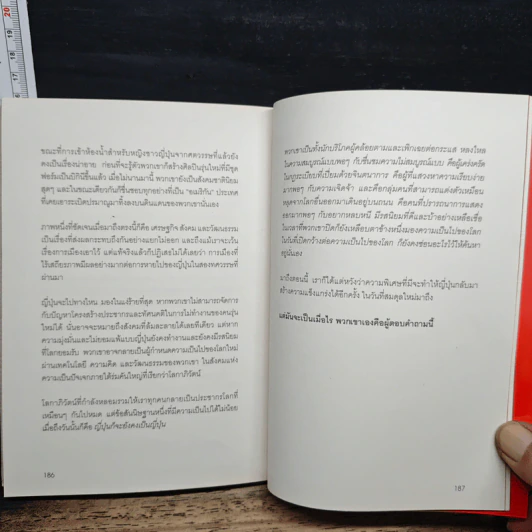 20
19
18
17
16
ขณะที่การเข้าห้องน้ำสำหรับหญิงชาวญี่ปุ่นจากศตวรรษที่แล้วยัง
คงเป็นเรื่องน่าอาย ก่อนที่จะรู้ตัวพวกเขาก็สร้างศิลปินรุ่นใหม่ที่มีชุด
ฟอร์มเป็นบิกินีขึ้นแล้ว เมื่อไม่นานมานี้ พวกเขายังเป็นสังคมชาตินิยม
สุดๆ และในขณะเดียวกันก็ชื่นชอบทุกอย่างที่เป็น "อเมริกัน" ประเทศ
ที่เคยเอาระเบิดปรมาณูมาทิ้งลงบนดินแดนของพวกเขานั่นเอง
ภาพหนึ่งที่ชัดเจนเมื่อมาถึงตรงนี้ก็คือ เศรษฐกิจ สังคม และวัฒนธรรม
เป็นเรื่องที่ส่งผลกระทบถึงกันอย่างแยกไม่ออก และถึงแม้เราจะเว้น
เรื่องการเมืองเอาไว้ แต่แท้จริงแล้วก็ปฏิเสธไม่ได้เลยว่า การเมืองที่
ไร้เสถียรภาพมีผลอย่างมากต่อการหายไปของญี่ปุ่นในสองทศวรรษที่
ผ่านมา
ญี่ปุ่นจะไปทางไหน มองในแง่ร้ายที่สุด หากพวกเขาไม่สามารถจัดการ
กับปัญหาโครงสร้างประชากรและทัศนคติในการไม่ทำงานของคนรุ่น
ใหม่ได้ นั่นอาจจะหมายถึงสังคมที่ล้มละลายได้เลยทีเดียว แต่หาก
ความมุ่งมั่นและไม่ยอมแพ้แบบญี่ปุ่นยังคงทำงานและยังคงมีรสนิยม
ที่โลกยอมรับ พวกเขาอาจกลายเป็นผู้กำหนดความเป็นไปของโลกใหม่
ผ่านเทคโนโลยี ความคิด และวัฒนธรรมของพวกเขา ในสังคมแห่ง
ความเป็นปัจเจกภายใต้ร่มคันใหญ่ที่เรียกว่าโลกาภิวัตน์
โลกาภิวัตน์ที่กำลังหลอมรวมให้เราทุกคนกลายเป็นประชากรโลกที่
เหมือนๆ กันไปหมด แต่ข้อสันนิษฐานหนึ่งที่มีความเป็นไปได้ไม่น้อย
เมื่อถึงวันนั้นก็คือ ญี่ปุ่นก็จะยังคงเป็นญี่ปุ่น
186
พวกเขาเป็นทั้งนักบริโภคผู้คล้อยตามและเพิกเฉยต่อกระแส หลงใหล
ในความสมบูรณ์แบบพอๆ กับชื่นชมความไม่สมบูรณ์แบบ คือผู้เคร่งครัด
ในกฎระเบียบที่เปี่ยมด้วยจินตนาการ คือผู้ที่แสวงหาความเรียบง่าย
มากพอๆ กับความเจิดจ้า และคือกลุ่มคนที่สามารถแต่งตัวเหมือน
หลุดจากโลกอื่นออกมาเดินอยู่บนถนน คือคนที่ปรารถนาการแสดง
ออกมากพอๆ กับอยากหลบหนี มีรสนิยมที่ดีและบ้าอย่างเหลือเชื่อ
ในเวลาที่พวกเขาปิดก็ยังเหลือบตาข้างหนึ่งมองความเป็นไปของโลก
ในวันที่เปิดกว้างต่อความเป็นไปของโลก ก็ยังคงซ่อนอะไรไว้ให้ค้นหา
อยู่นั่นเอง
มาถึงตอนนี้ เราก็ได้แต่หวังว่าความพิเศษที่มีจะทำให้ญี่ปุ่นกลับมา
สร้างความแข็งแกร่งได้อีกครั้ง ในวันที่สมดุลใหม่มาถึง
แต่มันจะเป็นเมื่อไร พวกเขาเองคือผู้ตอบคำถามนี้
187